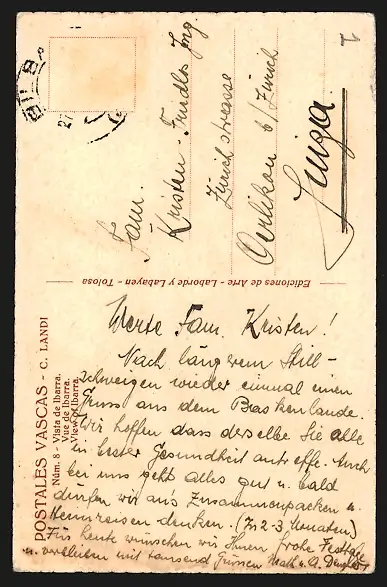 Fam.
Kristen - Fundler Ing
Zürichstrasse
Oerlikon b/Zürich
Suiza
Ediciones de Arte - Laborde y Labayen - Tolosa
POSTALES VASCAS - C. LANDI
Núm. 8 - Vista de Ibarra.
Vue de Ibarra.
View of Ibarra.
Werte Fam. Kristen!
Nach längerem Still-
schweigen wieder einmal einen
Gruss aus dem Baskenlande.
Wir hoffen dass derselbe Sie alle
in bester Gesundheit antreffe. Auch
bei uns geht alles gut u. bald
dürfen wir ans Zusammenpacken u.
Heimreisen denken. (In 2-3 Monaten)
Für heute wünschen wir Ihnen frohe Festtage
u. verbleiben mit tausend Grüssen Math. u. A.